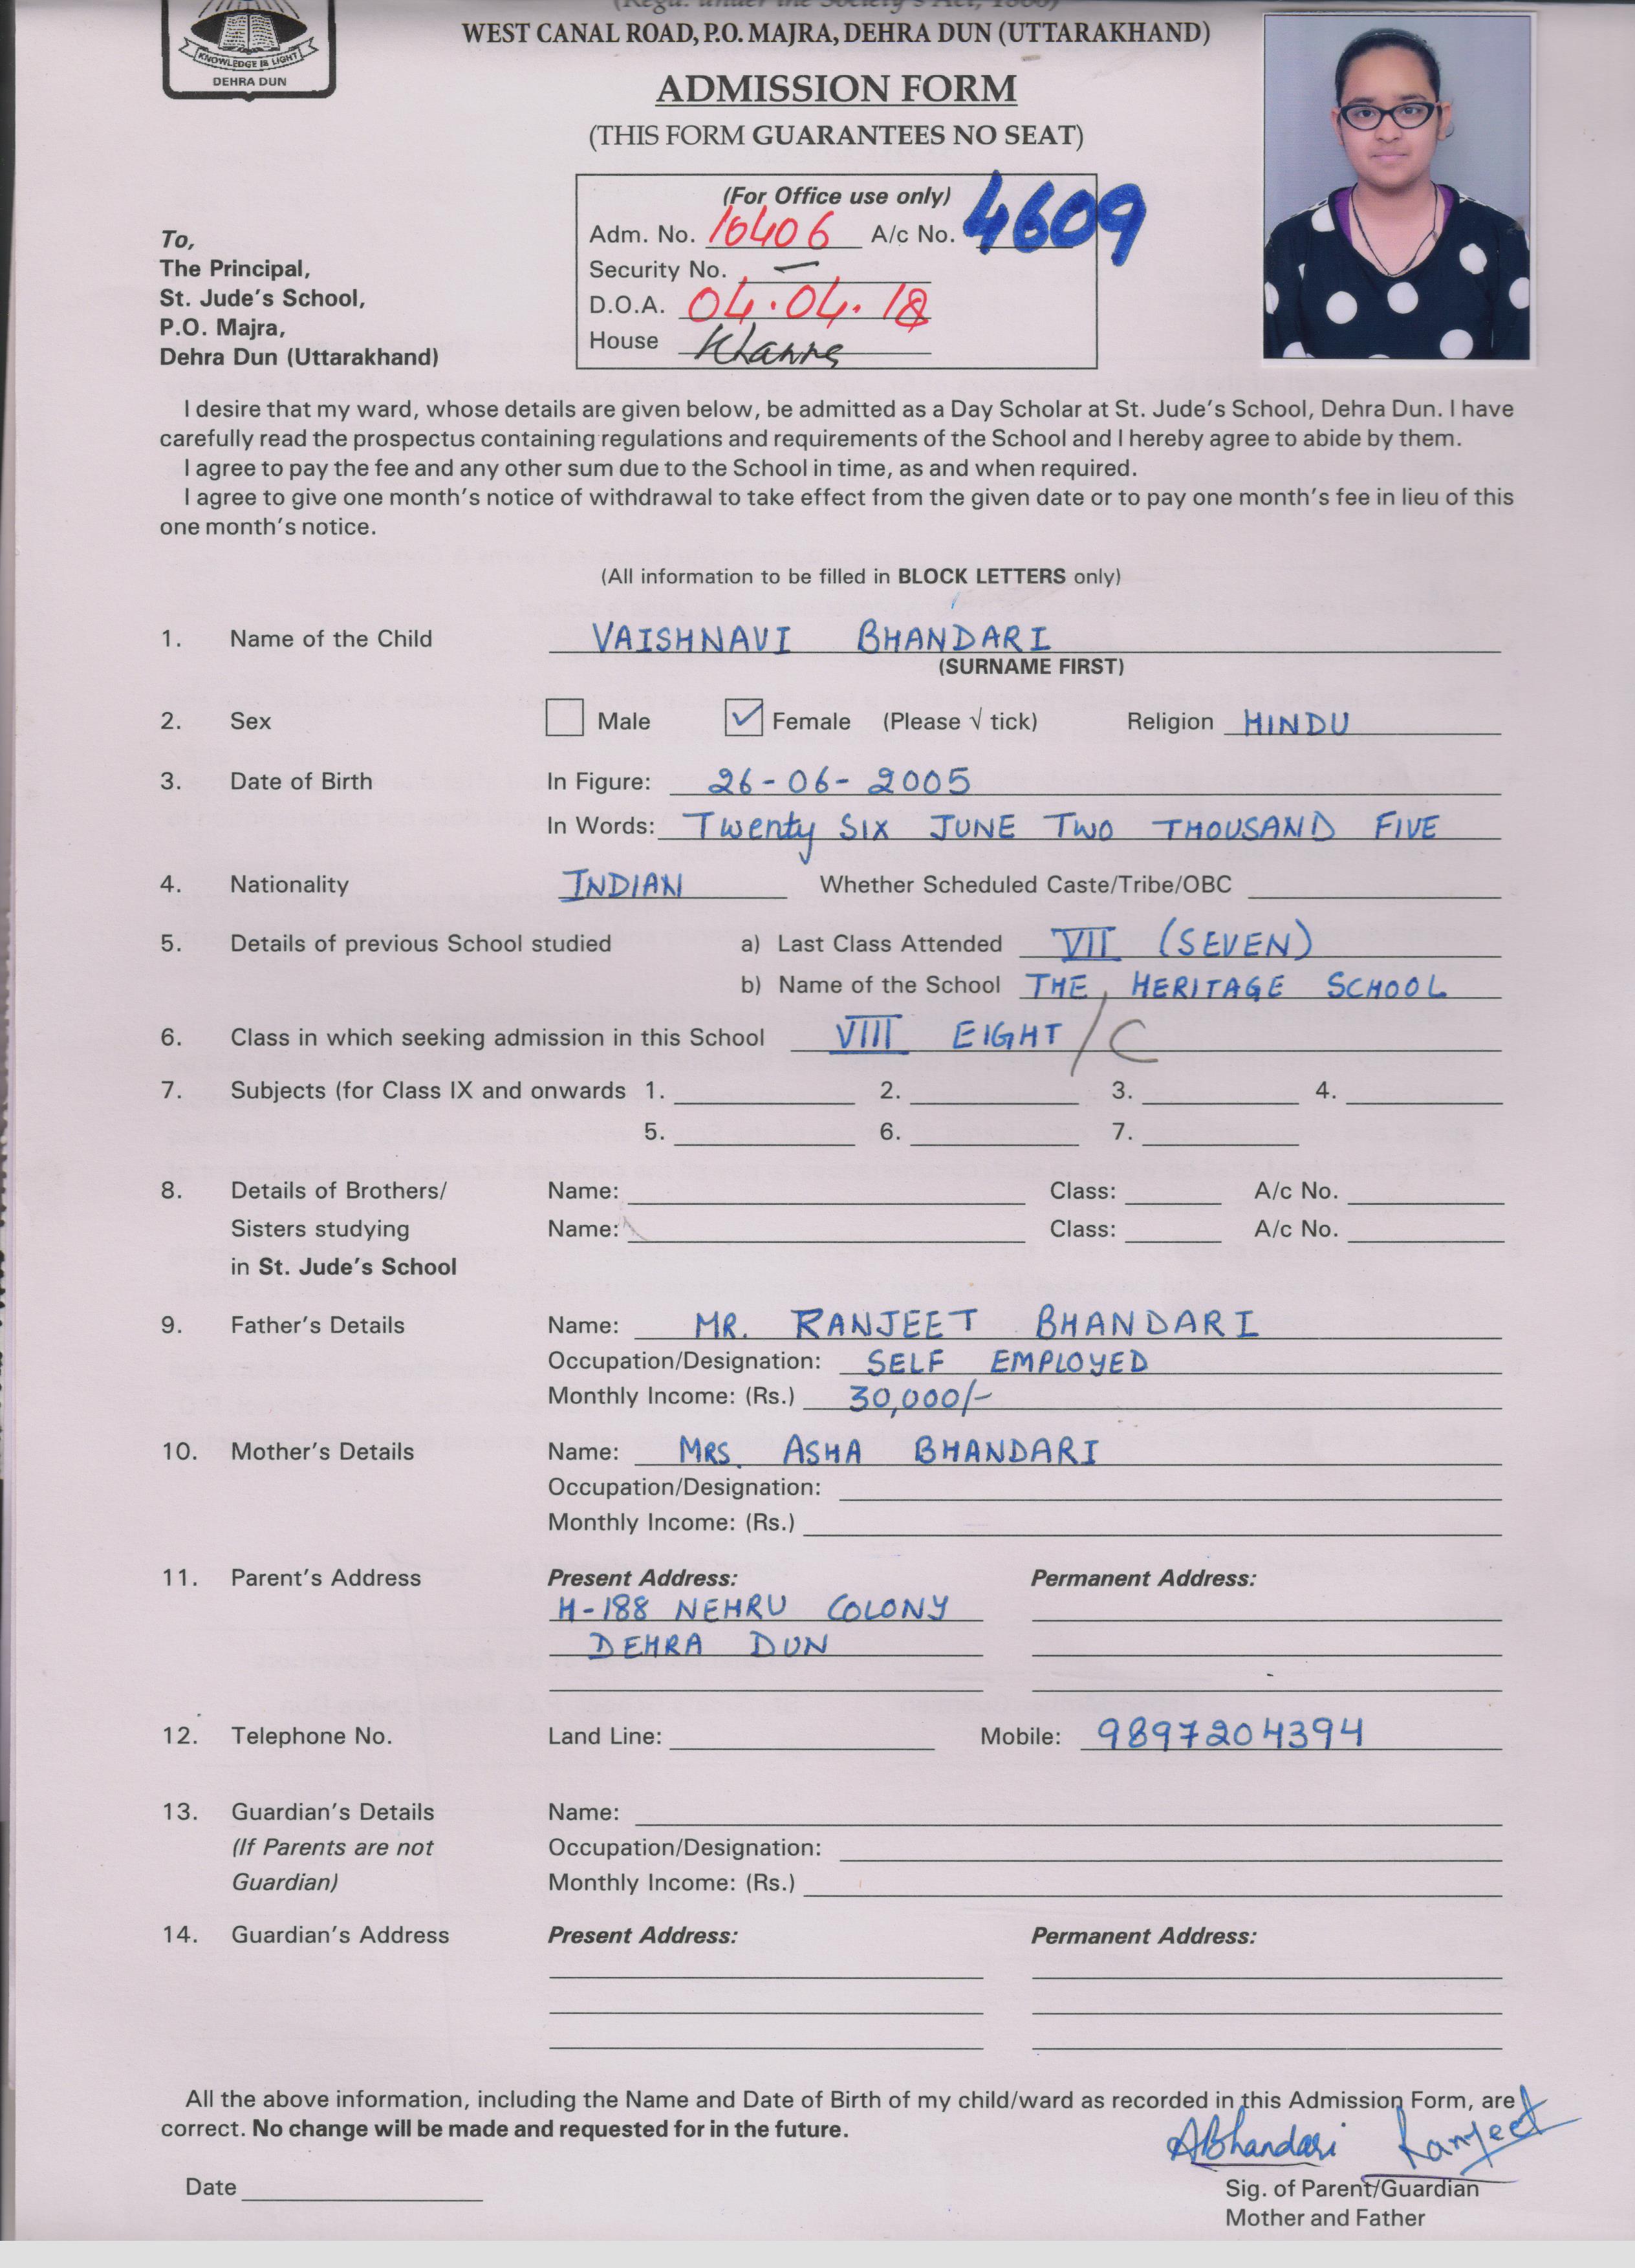 (Regd. under the Society's Act, 1860)
WEST CANAL ROAD, P.O. MAJRA, DEHRA DUN (UTTARAKHAND)
KNOWLEDGE IS LIGHT
DEHRA DUN
ADMISSION FORM
(THIS FORM GUARANTEES NO SEAT)
(For Office use only)
Adm. No. 10406 A/c No. 4609
Security No. —
D.O.A. 04.04.18
House Khanna
To,
The Principal,
St. Jude's School,
P.O. Majra,
Dehra Dun (Uttarakhand)
I desire that my ward, whose details are given below, be admitted as a Day Scholar at St. Jude's School, Dehra Dun. I have
carefully read the prospectus containing regulations and requirements of the School and I hereby agree to abide by them.
I agree to pay the fee and any other sum due to the School in time, as and when required.
I agree to give one month's notice of withdrawal to take effect from the given date or to pay one month's fee in lieu of this
one month's notice.
(All information to be filled in BLOCK LETTERS only)
1. Name of the Child VAISHNAVI BHANDARI
(SURNAME FIRST)
2. Sex Male ✓ Female (Please √ tick) Religion HINDU
3. Date of Birth In Figure: 26-06-2005
In Words: Twenty SIX JUNE TWO THOUSAND FIVE
4. Nationality INDIAN Whether Scheduled Caste/Tribe/OBC
5. Details of previous School studied a) Last Class Attended VII (SEVEN)
b) Name of the School THE HERITAGE SCHOOL
6. Class in which seeking admission in this School VIII EIGHT / C
7. Subjects (for Class IX and onwards 1. 2. 3. 4.
5. 6. 7.
8. Details of Brothers/ Name: Class: A/c No.
Sisters studying Name: Class: A/c No.
in St. Jude's School
9. Father's Details Name: MR. RANJEET BHANDARI
Occupation/Designation: SELF EMPLOYED
Monthly Income: (Rs.) 30,000/-
10. Mother's Details Name: MRS. ASHA BHANDARI
Occupation/Designation:
Monthly Income: (Rs.)
11. Parent's Address Present Address: Permanent Address:
H-188 NEHRU COLONY
DEHRA DUN
12. Telephone No. Land Line: Mobile: 9897204394
13. Guardian's Details Name:
(If Parents are not Occupation/Designation:
Guardian) Monthly Income: (Rs.)
14. Guardian's Address Present Address: Permanent Address:
All the above information, including the Name and Date of Birth of my child/ward as recorded in this Admission Form, are
correct. No change will be made and requested for in the future.
ABhandari Ranjeet
Date
Sig. of Parent/Guardian
Mother and Father